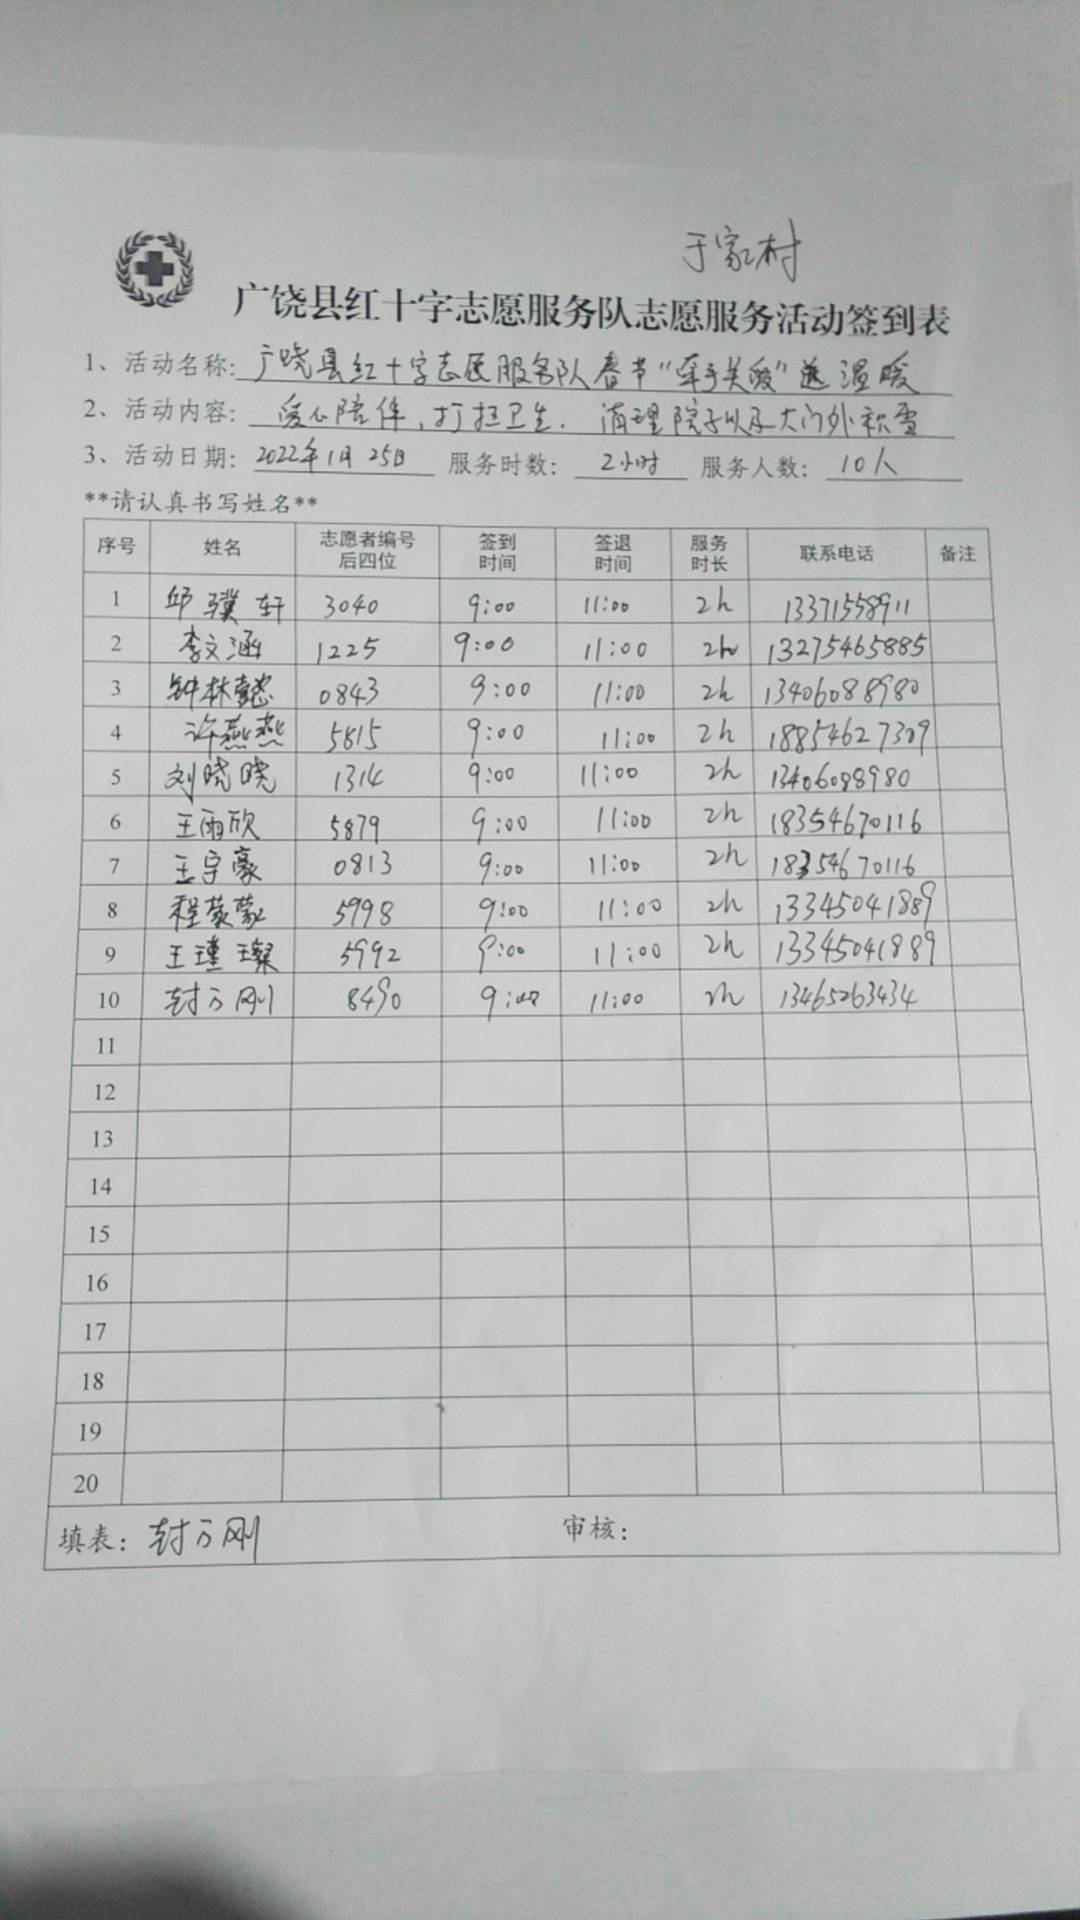 于家村
广饶县红十字志愿服务队志愿服务活动签到表
1、活动名称: 广饶县红十字志愿服务队春节“牵手关爱”送温暖
2、活动内容: 爱心陪伴、打扫卫生. 清理院子以及大门外积雪
3、活动日期: 2022年1月25日 服务时数: 2小时 服务人数: 10人
**请认真书写姓名**
序号 姓名 志愿者编号后四位 签到时间 签退时间 服务时长 联系电话 备注
1 邱骥轩 3040 9:00 11:00 2h 13371558911
2 李文涵 1225 9:00 11:00 2h 13275465885
3 钟林懿 0843 9:00 11:00 2h 13406088980
4 许燕燕 5815 9:00 11:00 2h 18854627309
5 刘晓晓 1314 9:00 11:00 2h 13406088980
6 王雨欣 5879 9:00 11:00 2h 18354670116
7 王宇豪 0813 9:00 11:00 2h 18354670116
8 程蒙蒙 5998 9:00 11:00 2h 13345041889
9 王瑾璨 5992 9:00 11:00 2h 13345041889
10 封方刚 8490 9:00 11:00 2h 13465263434
11
12
13
14
15
16
17
18
19
20
填表: 封方刚 审核: